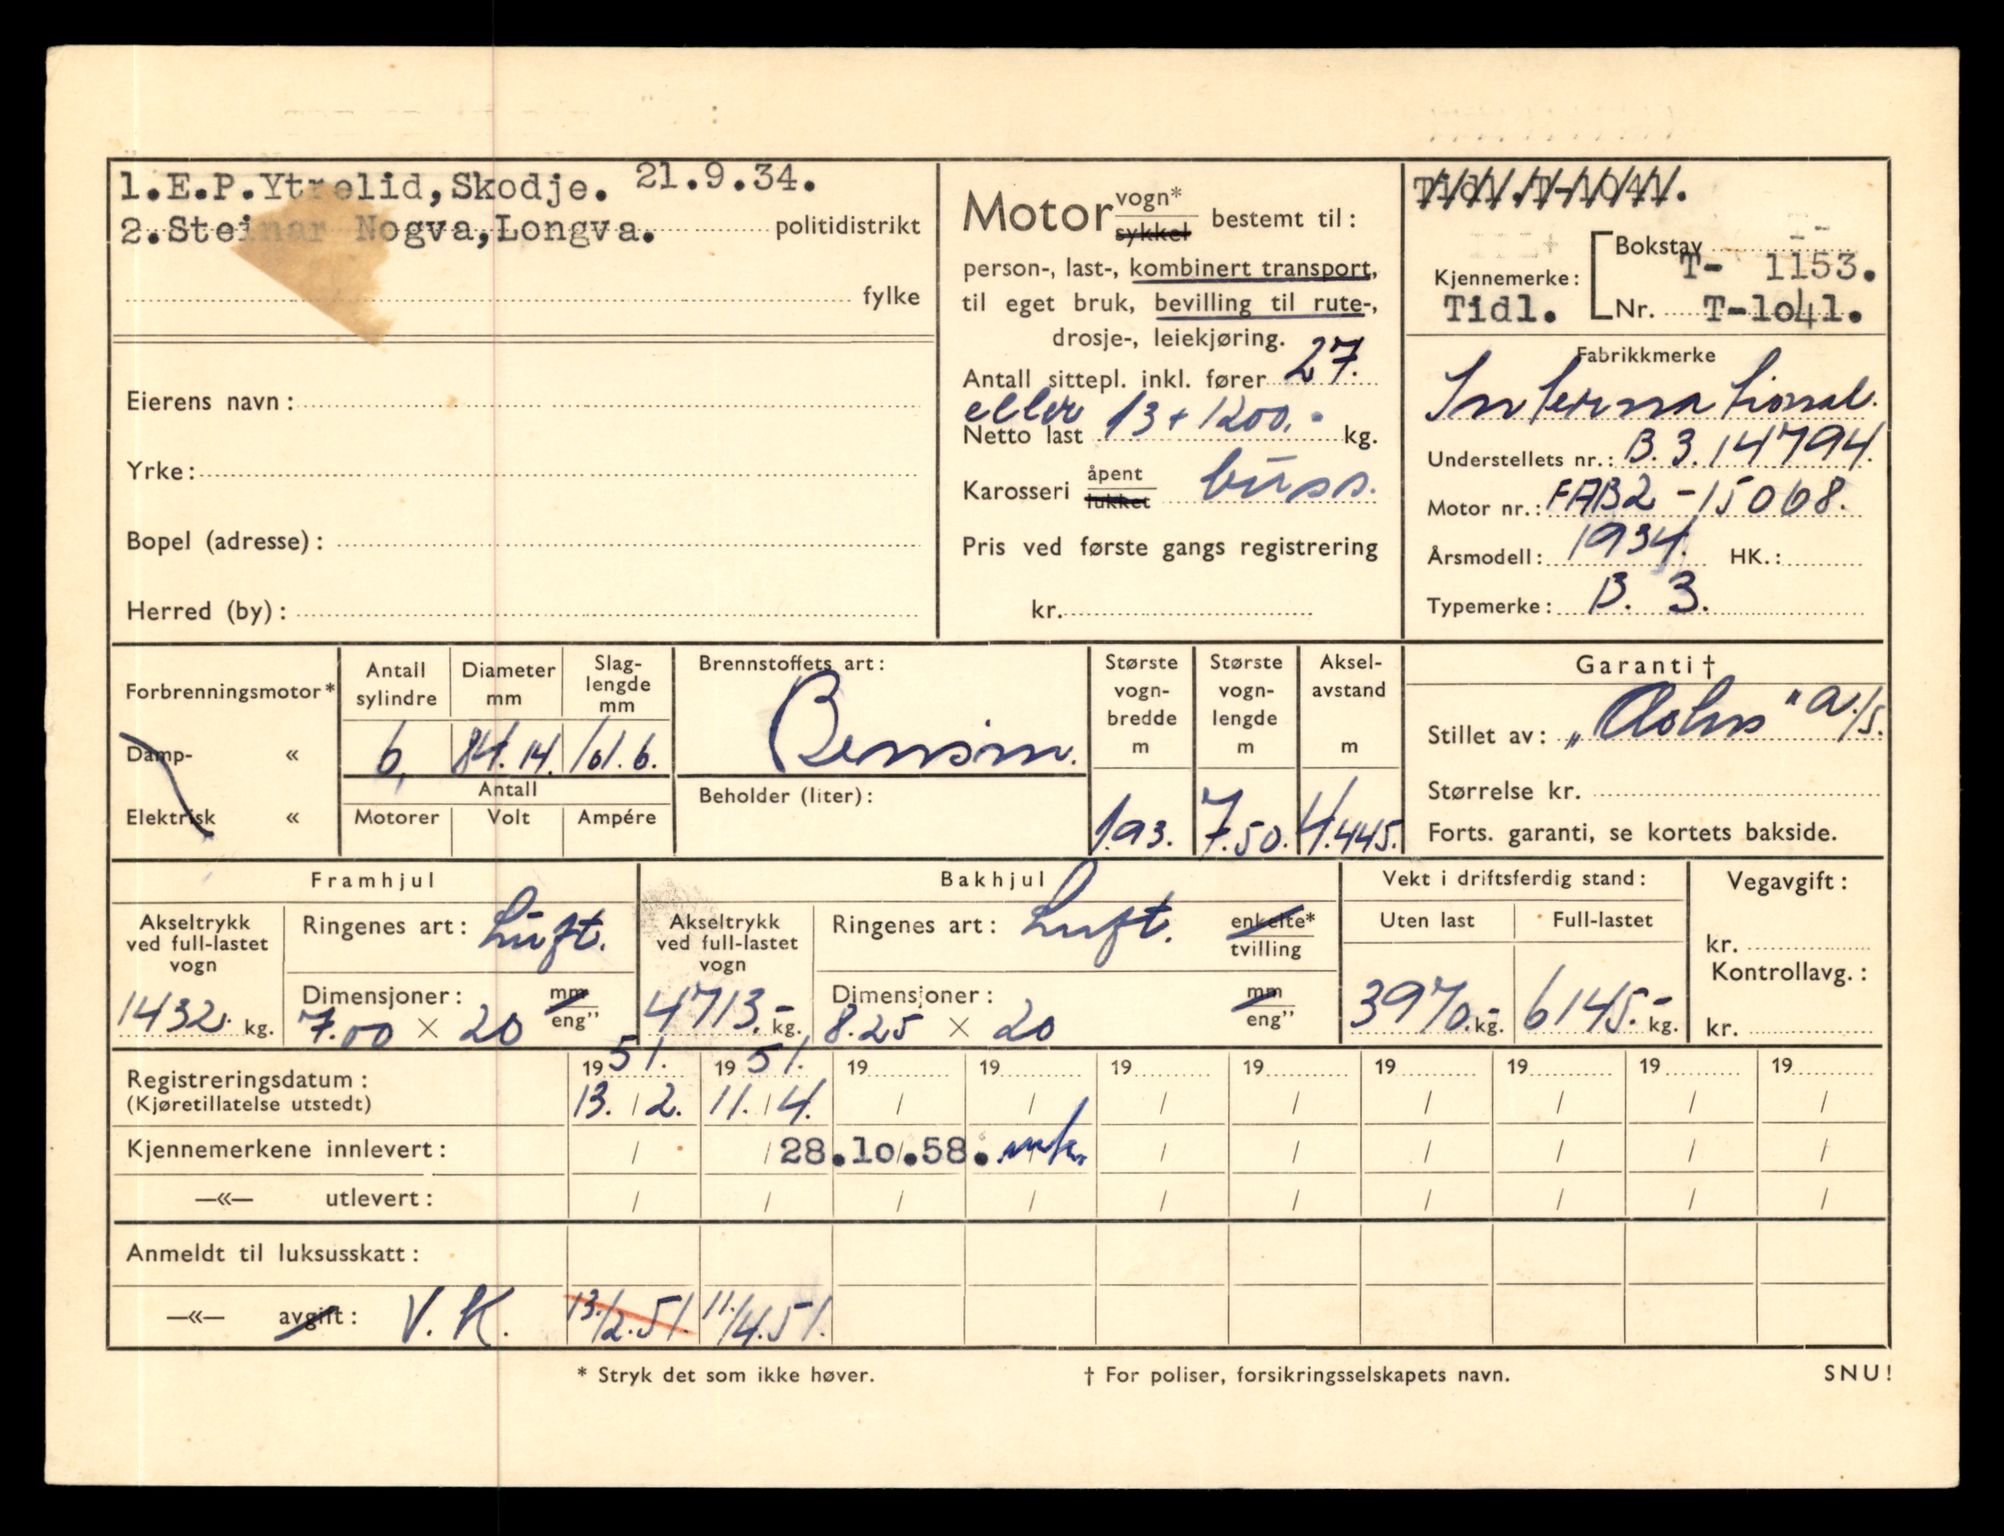 1.E.P.Ytrelid,Skodje. 21.9.34.
2.Steinar Nogva,Longva. politidistrikt
fylke
Eierens navn:
Yrke:
Bopel (adresse):
Herred (by):
Motor vogn* sykkel bestemt til:
person-, last-, kombinert transport,
til eget bruk, bevilling til rute-,
drosje-, leiekjøring.
Antall sittepl. inkl. fører 27.
eller 13 + 1200.-
Netto last kg.
Karosseri åpent lukket buss.
Pris ved første gangs registrering
kr.
Tidl.T-1041.
Bokstav
Kjennemerke: T- 1153.
Tidl. Nr. T-1041.
Fabrikkmerke
International.
Understellets nr.: B.3.14794.
Motor nr.: FAB2-15068.
Årsmodell: 1934. HK.:
Typemerke: B. 3.
Forbrenningsmotor*
Damp- «
Elektrisk «
Antall sylindre
6,
Diameter mm
84.14.
Slag-lengde mm
101.6.
Antall
Motorer Volt Ampére
Brennstoffets art:
Bensin.
Beholder (liter):
Største vogn-bredde m
1.93.
Største vogn-lengde m
7.50.
Aksel-avstand m
4.445.
Garanti †
Stillet av: „ " A/S.
Størrelse kr.
Forts. garanti, se kortets bakside.
Framhjul
Akseltrykk ved full-lastet vogn
1432. kg.
Ringenes art: Luft.
Dimensjoner: mm eng"
7.00 × 20
Bakhjul
Akseltrykk ved full-lastet vogn
4713.- kg.
Ringenes art: Luft. enkelte* tvilling
Dimensjoner: mm eng"
8.25 × 20
Vekt i driftsferdig stand:
Uten last Full-lastet
3970.- kg. 6145.- kg.
Vegavgift:
kr.
Kontrollavg.:
kr.
Registreringsdatum: 1951. 1951. 19 19 19 19 19 19 19 19
(Kjøretillatelse utstedt) 13. / 2. 11. / 4. / / / / / / / /
Kjennemerkene innlevert: / / 28.10.58. / / / / / / / /
—«— utlevert: / / / / / / / / / /
Anmeldt til luksusskatt:
—«— avgift: V. K. 13./2.51. 11./4.51.
* Stryk det som ikke høver. † For poliser, forsikringsselskapets navn. SNU!